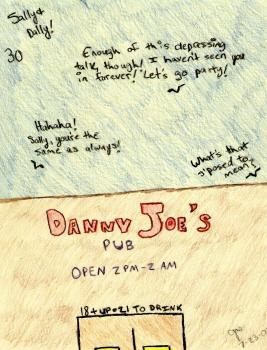 Sally &
Dally!
30
Enough of this depressing
talk, though! I haven't seen you
in forever! Let's go party!
Hahaha!
Sally, you're the
same as always!
What's that
s'posed to
mean?
DANNY JOE'S
PUB
OPEN 2PM-2AM
18+UP•21 TO DRINK